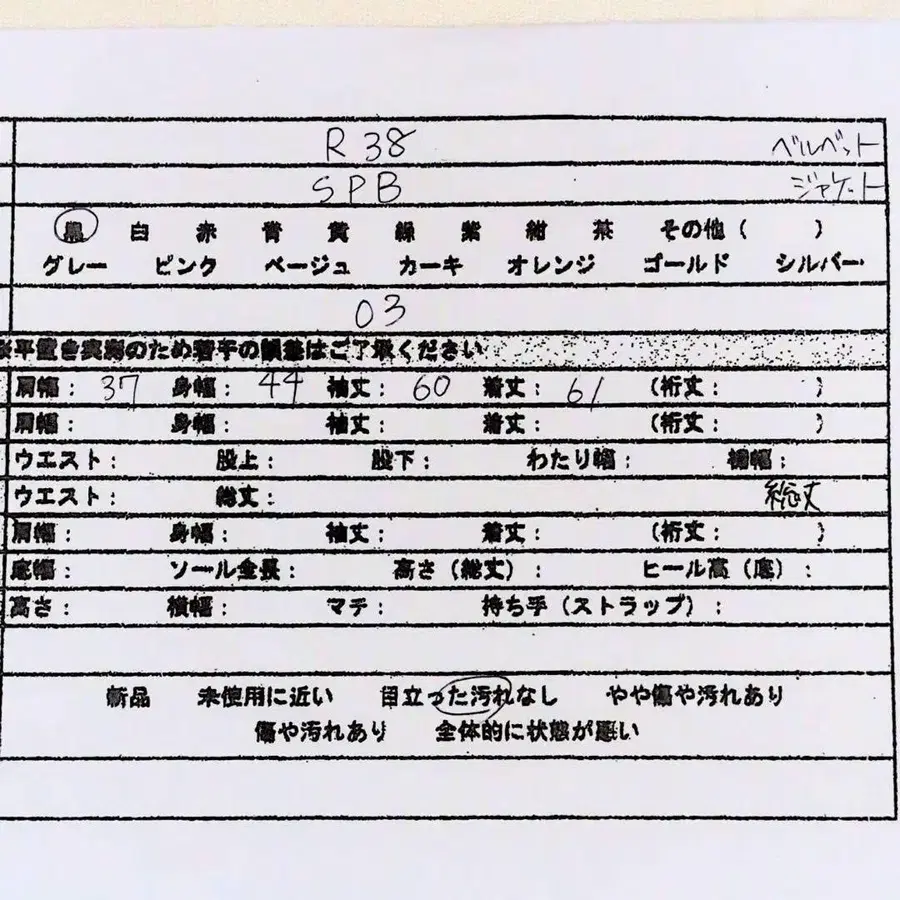 R 38 ベルベット
SPB ジャケット
黒 白 赤 青 黄 緑 紫 紺 茶 その他（ ）
グレー ピンク ベージュ カーキ オレンジ ゴールド シルバー
03
※平置き実測のため若干の誤差はご了承ください
肩幅： 37 身幅： 44 袖丈： 60 着丈： 61 （裄丈： ）
肩幅： 身幅： 袖丈： 着丈： （裄丈： ）
ウエスト： 股上： 股下： わたり幅： 裾幅：
ウエスト： 総丈： 総丈
肩幅： 身幅： 袖丈： 着丈： （裄丈： ）
底幅： ソール全長： 高さ（総丈）： ヒール高（底）：
高さ： 横幅： マチ： 持ち手（ストラップ）：
新品 未使用に近い 目立った汚れなし やや傷や汚れあり
傷や汚れあり 全体的に状態が悪い